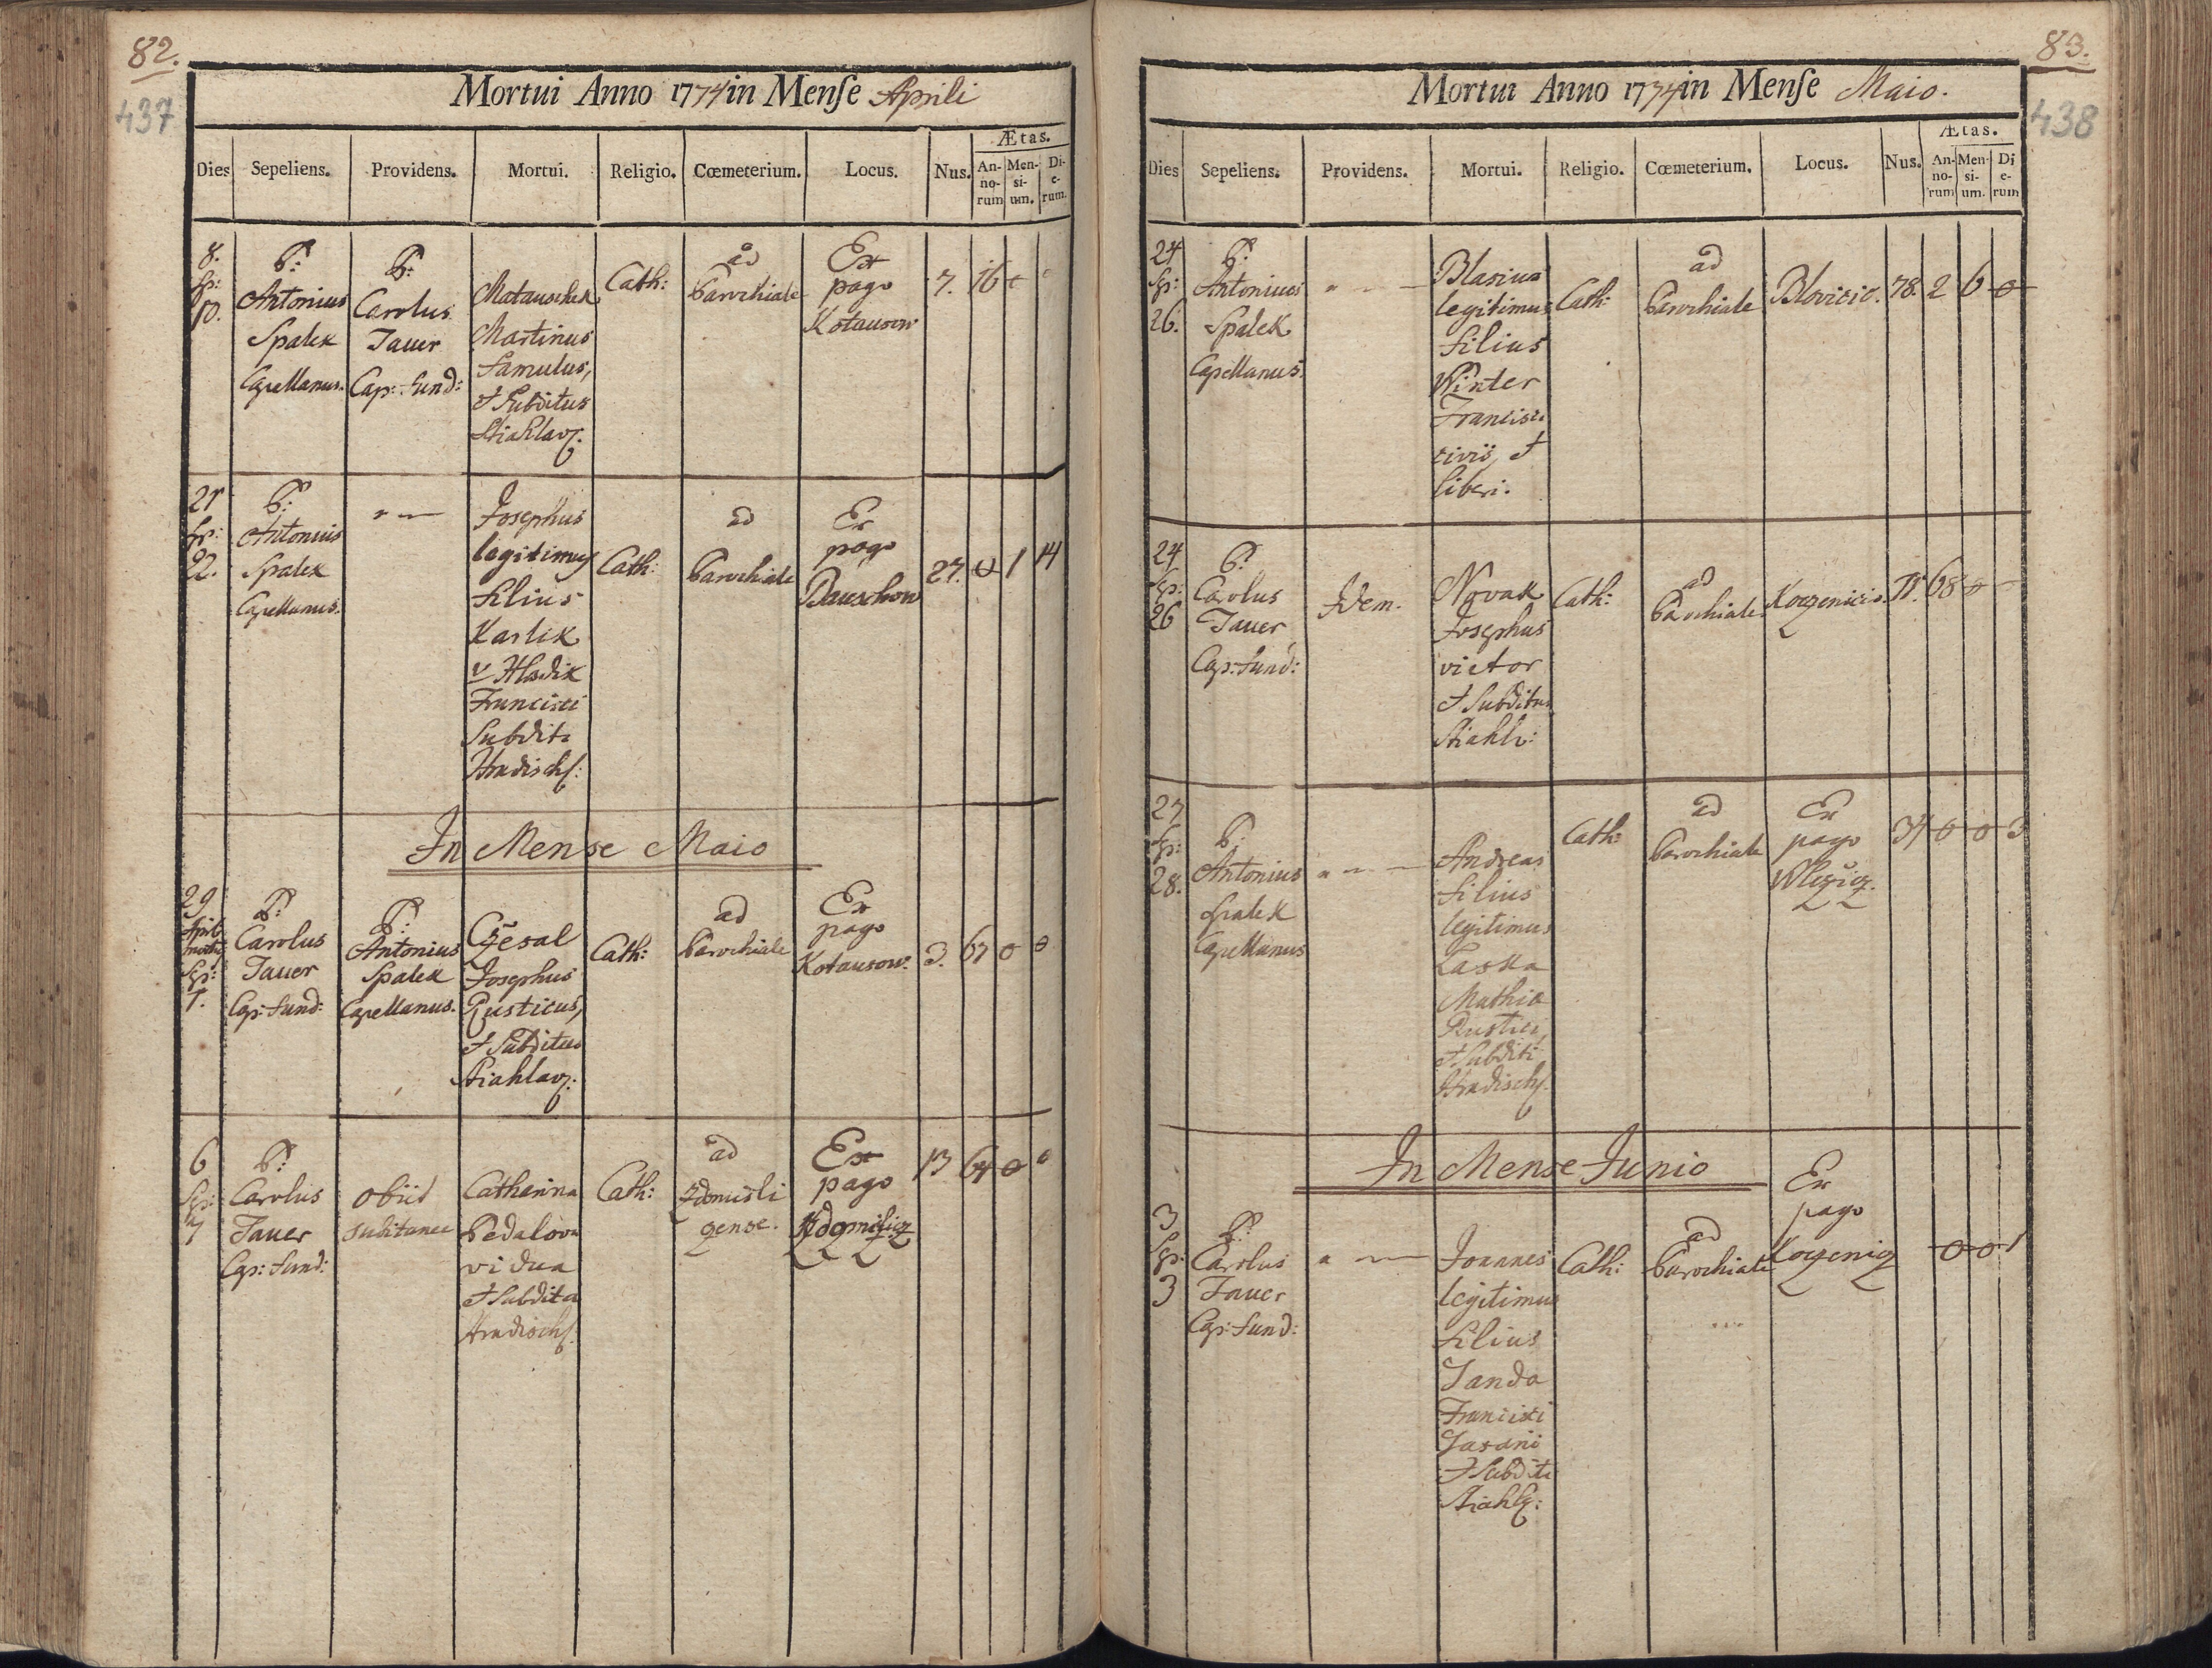 82.
437
Mortui Anno 1774 in Mense Aprili
Ætas.
Dies Sepeliens. Providens. Mortui. Religio. Cœmeterium. Locus. Nus. An-no-rum Men-si-um. Di-e-rum.
8.
Sp:
10.
P:
Antonius
Spalek
Capellanus.
P:
Carolus
Tauer
Cap: fund:
Matauschek
Martinus
famulus,
et Subditus
Stiahlavz.
Cath:
ad
Parochiale
Ex
pago
Kotausow
7. 16 0 0
21
Sp:
22.
P:
Antonius
Spalek
Capellanus.
Josephus
legitimus
filius
Karlik
v Hladik
Francisci
Subditi
Hradisch:
Cath:
ad
Parochiale
Ex
pago
Bauschow
27. 0 1 14
In Mense Maio
29
April
Sp:
1.
P:
Carolus
Tauer
Cap: fund:
P:
Antonius
Spalek
Capellanus.
Czesal
Josephus
Rusticus,
et Subditus
Stiahlavz.
Cath:
ad
Parochiale
Ex
pago
Kotausow.
3. 67 0 0
6
Sp:
7
P:
Carolus
Tauer
Cap: fund:
obiit
subitanee
Catharina
Pedalova
vidua
et Subdita
Hradisch:
Cath:
ad
Zdomisli
zense.
Ex
pago
13 64 0 0
83.
438
Mortui Anno 1774 in Mense Maio.
Ætas.
Dies Sepeliens. Providens. Mortui. Religio. Cœmeterium. Locus. Nus. An-no-rum Men-si-um. Di-e-rum
24
Sp:
26.
P:
Antonius
Spalek
Capellanus.
Blasius
legitimus
filius
Winter
Francisci
civis, et
liberi.
Cath:
ad
Parochiale
Blovicio.
78. 2 6 0
24
Sp:
26
P:
Carolus
Tauer
Cap: fund:
Idem.
Novak
Josephus
vietor
et Subditus
Stiahlv:
Cath:
ad
Parochiale
Korzenicio.
68 0
27
Sp:
28.
P:
Antonius
Spalek
Capellanus
Andreas
filius
legitimus
Laska
Mathia
Rustici,
et Subditi
Hradisch:
Cath:
ad
Parochiale
Ex
pago
Wlcziz.
34 0 0 3
In Mense Junio
3
Sp:
3
P:
Carolus
Tauer
Cap: fund:
Joannes
legitimus
filius
Janda
Francisci
Casarii
et Subditi
Stiahlz:
Cath:
ad
Parochiale
Ex
pago
Korzeniz
0 0 1